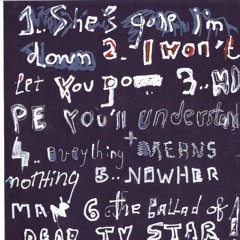 1.. She's gone I'm
down 2. I won't
let you go-- 3.. HO
PE you'll understand
4.. everything + MEANS
nothing 5.. NOWHER
MAN 6 the ballad of A
DEAD TV STAR